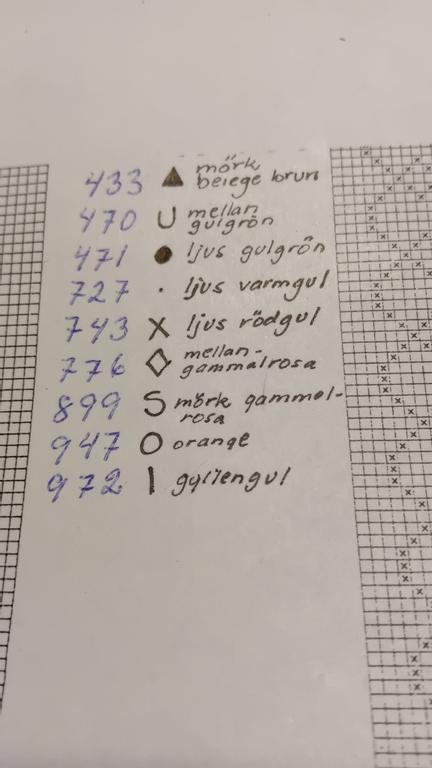 433 ▲ mörk
beiege brun
470 U mellan
gulgrön
471 ● ljus gulgrön
727 · ljus varmgul
743 X ljus rödgul
776 ◇ mellan-
gammalrosa
899 S mörk gammel-
rosa
947 O orange
972 | gyllengul